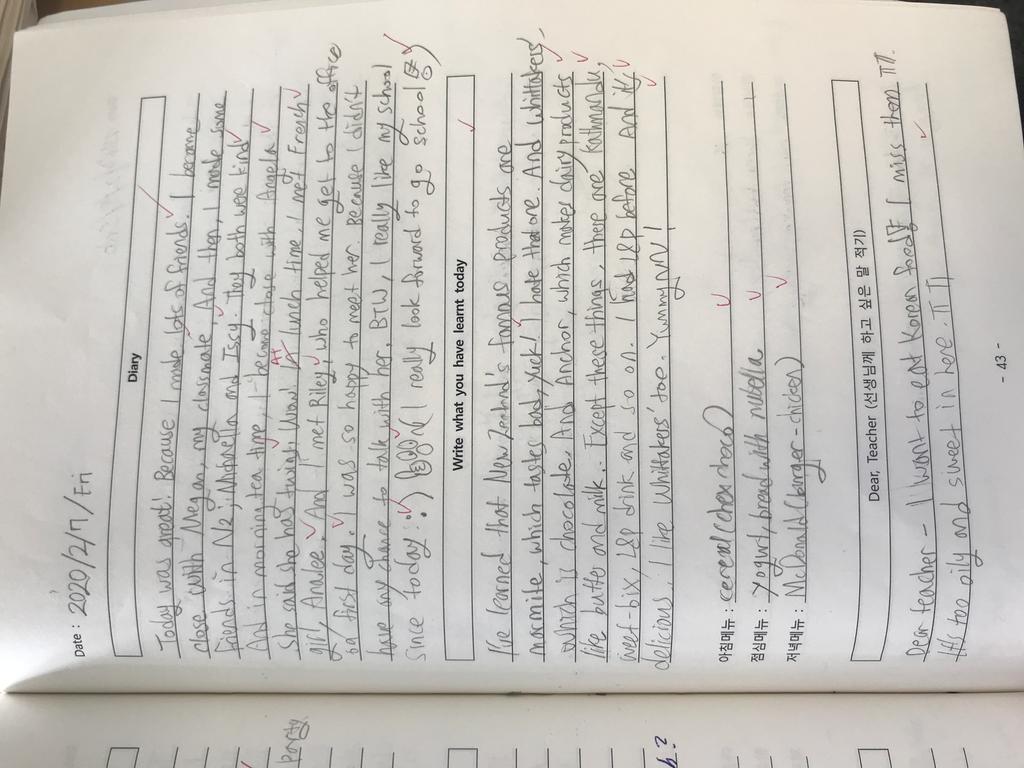 Date : 2020/2/7/Fri
Diary
Today was great! Because I made lots of friends. I became
close with Megan, my classmate. And then, I make some
friends in N2, Mirabelle and Issy. They both were kind
And in morning tea time, I become close with Angela
She said she has twins! Wow! At lunch time, I met French
girl, Analee. And I met Riley, who helped me get to the office
on first day. I was so happy to meet her. Because I didn't
have any chance to talk with her. BTW, I really like my school
since today :) (I really look forward to go school)
Write what you have learnt today
I've learned that New Zealand's famous products are
marmite, which tastes bad, yuck! I hate that one. And Whittakers'
which is chocolate. And Anchor, which makes dairy products
like butter and milk. Except these things, there are Kathmandu,
weet-bix, L&P drink and so on. I had L&P before And it's
delicious. I like Whittakers' too. YummyMM!
아침메뉴 : cereal (chex choco)
점심메뉴 : Yogurt, bread with nutella
저녁메뉴 : McDonald (burger - chicken)
Dear, Teacher (선생님께 하고 싶은 말 적기)
Dear teacher - I want to eat Korean food! I miss them ㅠㅠ.
It's too oily and sweet in here. ㅠㅠ
- 43 -